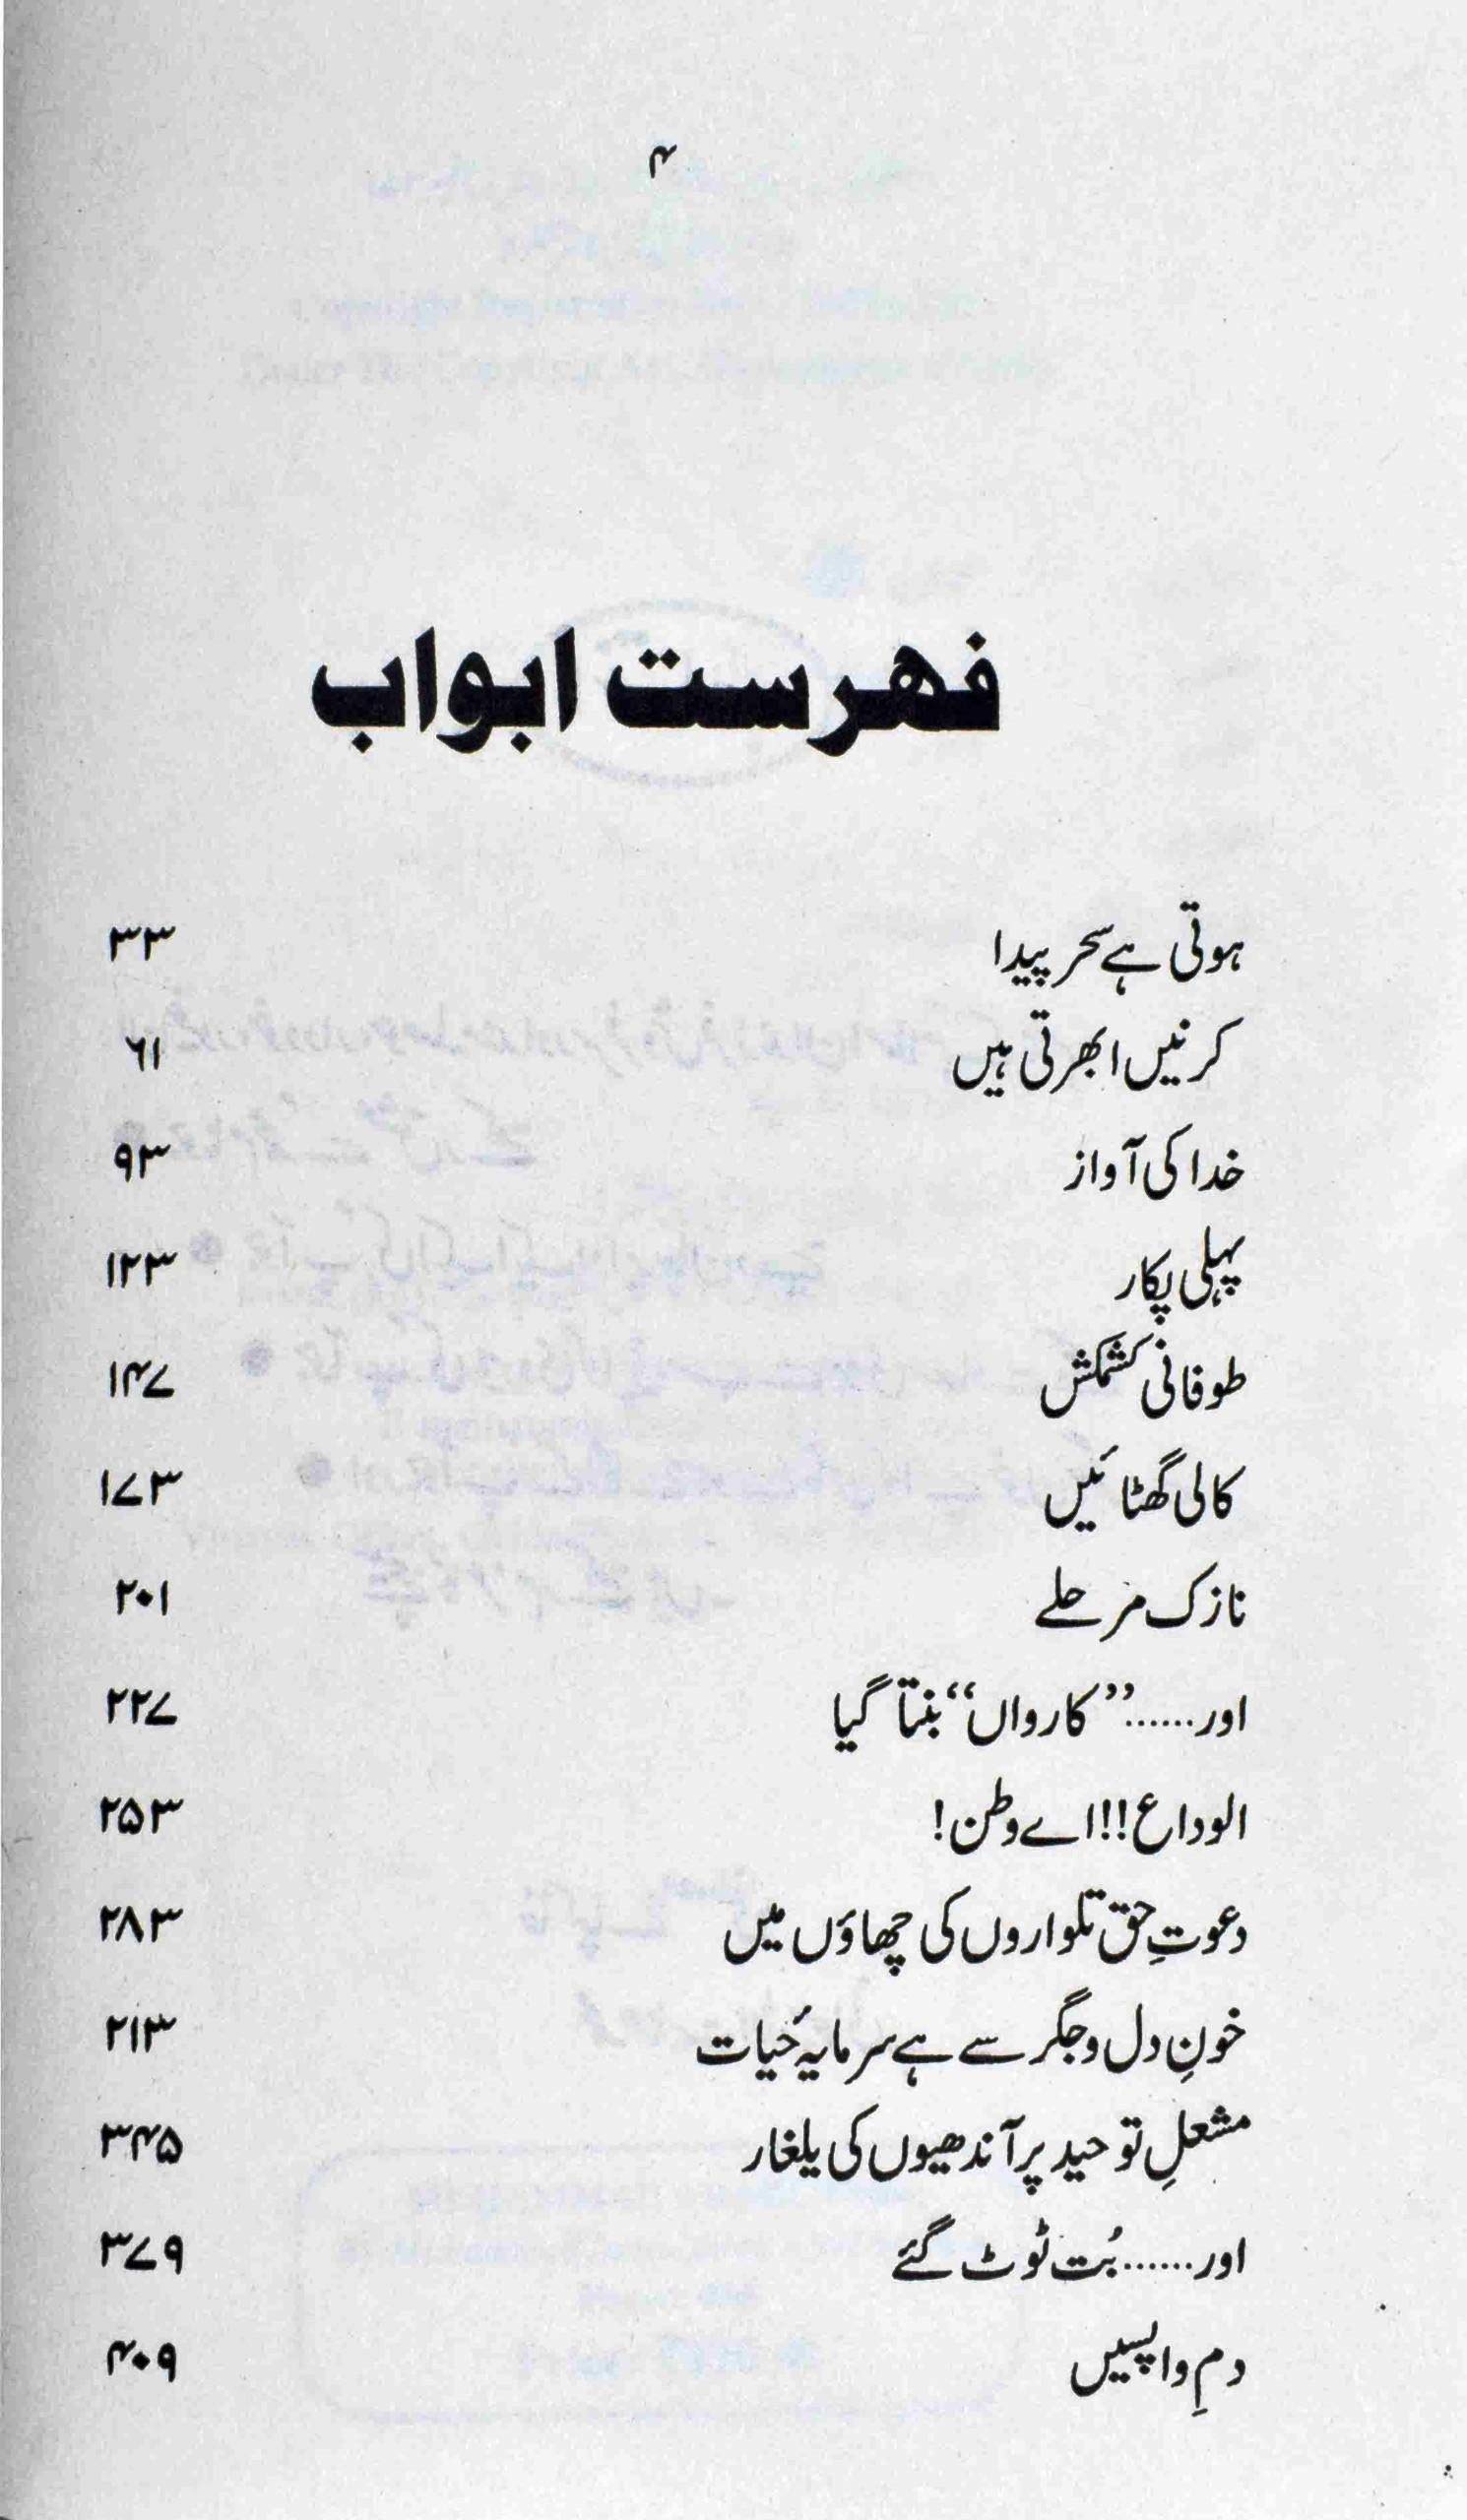 ۴
فهرست ابواب
ہوتی ہے سحر پیدا ۳۳
کرنیں ابھرتی ہیں ۶۱
خدا کی آواز ۹۳
پہلی پکار ۱۲۳
طوفانی کشمکش ۱۴۷
کالی گھٹائیں ۱۷۳
نازک مرحلے ۲۰۱
اور...... ”کارواں“ بنتا گیا ۲۲۷
الوداع!!! اے وطن! ۲۵۳
دعوتِ حق تلواروں کی چھاؤں میں ۲۸۳
خونِ دل و جگر سے ہے سرمایۂ حیات ۲۱۳
مشعلِ توحید پر آندھیوں کی یلغار ۳۴۵
اور...... بُت ٹوٹ گئے ۳۷۹
دمِ واپسیں ۴۰۹